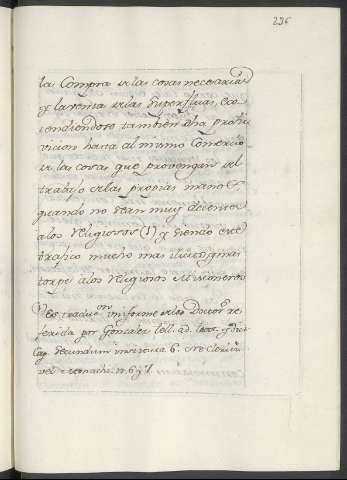 236
la Compra de las cosas necesarias
y la venta de las superfluas, ex-
tendiendose tambien dha prohi
vicion hasta al mismo Comercio
de las cosas que provengan del
trabajo de las propias manos
quando no sean muy decentes
a los religiosos (1) y siendo este
trafico mucho mas ilicito, y mas
torpe a los religiosos Misioneros
Es tradic.on uniforme de los Doctor.s re
ferida por Gonzalez
Cap. secundum instituta 6. Ne Clerici
vel Monachi n. 6 y 7.